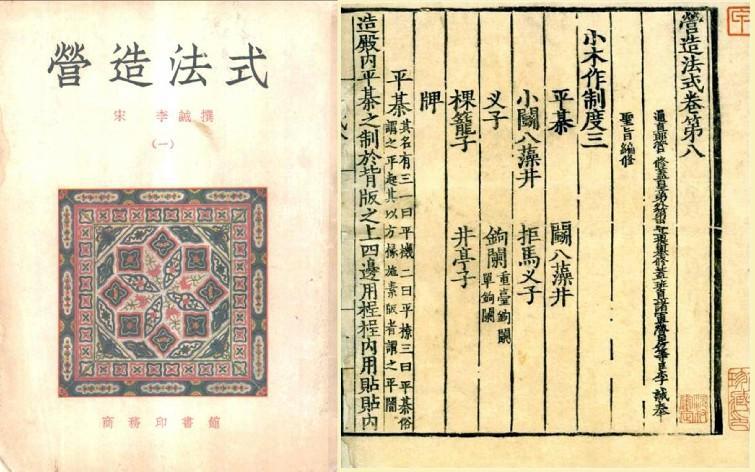 營造法式
宋 李誡撰
(一)
商務印書館
營造法式卷第八
通直郎管修蓋皇弟外第專一提舉修蓋班直諸軍營房等臣李誡奉
聖旨編修
小木作制度三
平棊 鬭八藻井
小鬭八藻井 拒馬叉子
叉子 鉤闌重臺鉤闌
單鉤闌
棵籠子 井亭子
牌
平棊其名有三一曰平機二曰平橑三曰平棊俗
謂之平起其以方椽施素版者謂之平闇
造殿內平棊之制於背版之上四邊用桯桯內用貼貼內